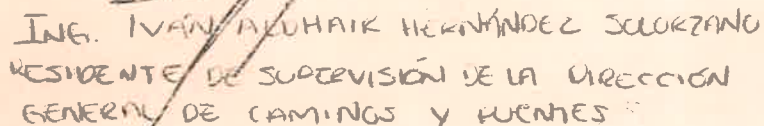 ING. IVÁN HERNÁNDEZ SOLORZANO
RESIDENTE DE SUPERVISIÓN DE LA DIRECCIÓN
GENERAL DE CAMINOS Y PUENTES